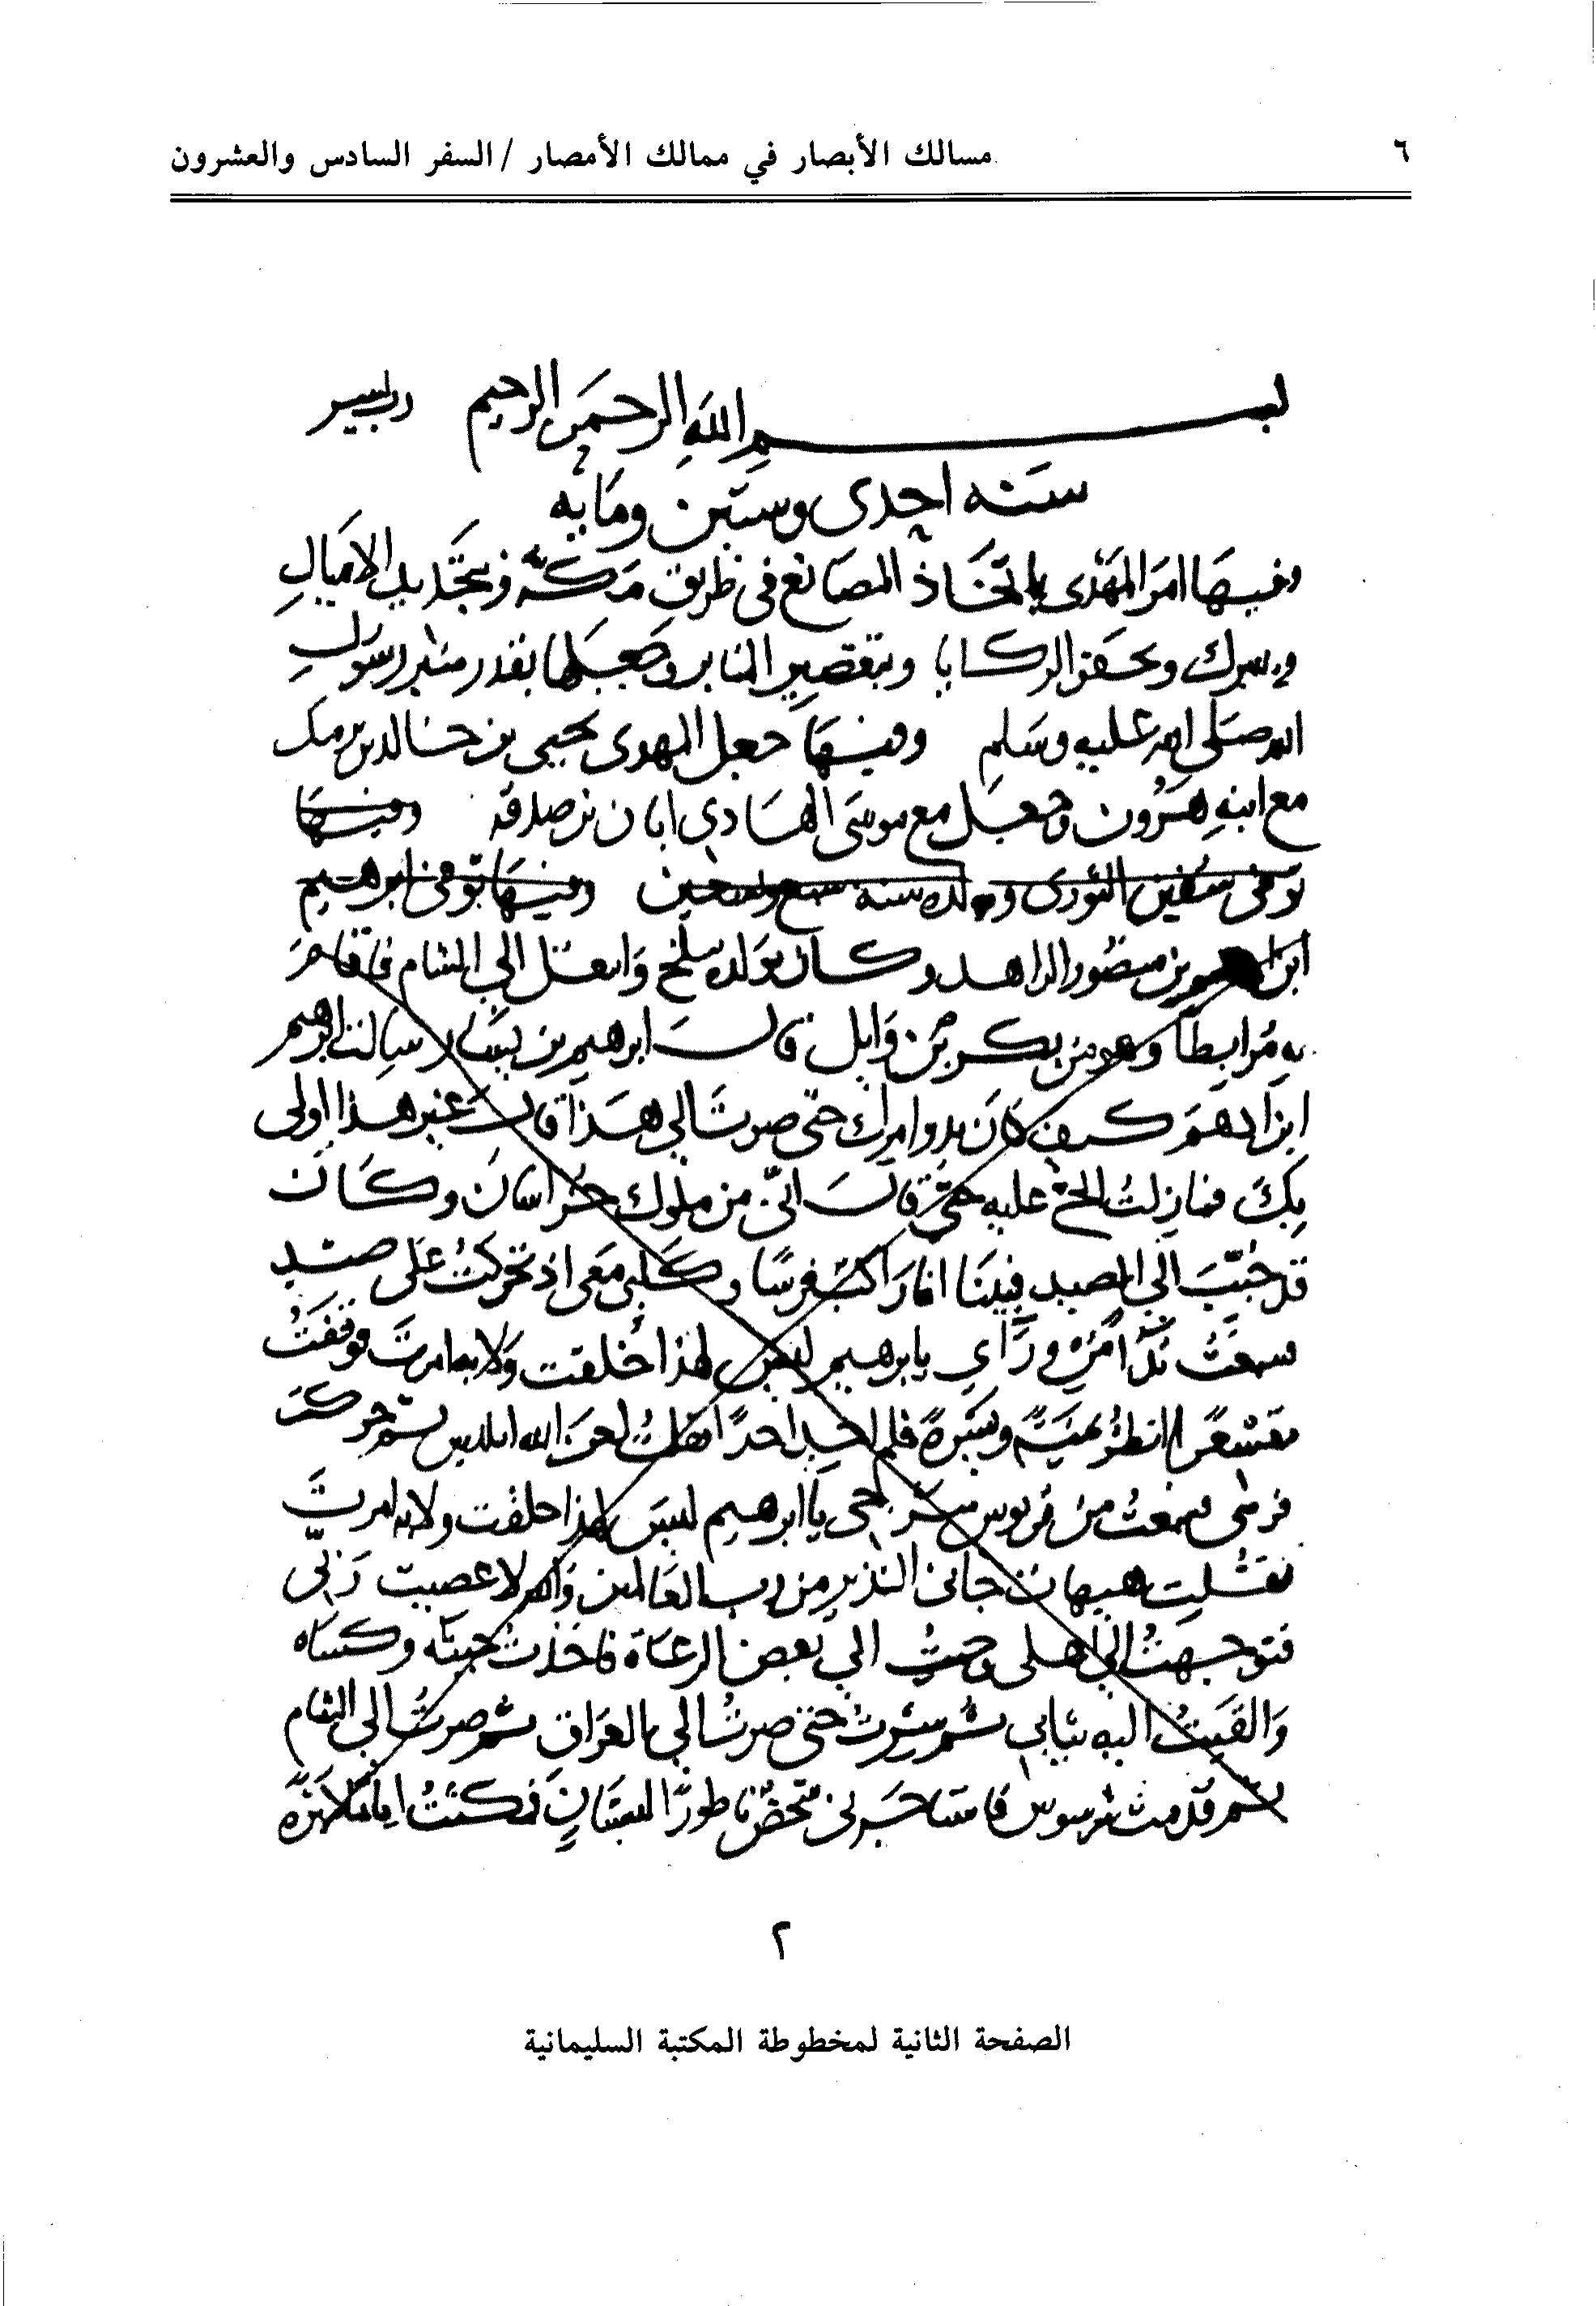 ٦
مسالك الأبصار في ممالك الأمصار / السفر السادس والعشرون
بسم الله الرحمن الرحيم رب يسر
سنة احدى وستين ومايه
وفيها امر المهدى باتخاذ المصانع فى طريق مكة وبتجديد الاميال
والبرك وبحفر الركايا وبتقصير المنابر وجعلها بقدر منبر رسول
الله صلى الله عليه وسلم وفيها جعل المهدى يحيى بن خالد بن برمك
مع ابنه هرون وجعل مع موسى الهادي ابان بن صدقة وفيها
توفى سفين الثورى ومولده سنة سبع وتسعين وفيها توفى ابرهيم
ابن ادهم بن منصور الزاهد وكان مولده ببلخ وانتقل الى الشام فاقام
به مرابطا وهو من بكر بن وايل قال ابرهيم بن يسار سالت ابرهيم
ابن ادهم كيف كان بدو امرك حتى صرت الى هذا قال غير هذا اولى
بك فمازلت الح عليه حتى قال انى من ملوك خراسان وكان
قد حبب الي الصيد فبينا انا راكب فرسا وكلبى معى اذ تحركت على صيد
سمعت ندآ من وراي يابرهيم ليس لهذا خلقت ولا به امرت فوقفت
مقشعرا انظر يمينة ويسرة فلم اجد احدا فقلت لعن الله ابليس ثم حركت
فرسى فسمعت من قربوس سرجى يا ابرهيم ليس لهذا خلقت ولا به امرت
فقلت هيهات جانى النذير من رب العالمين والله لا عصيت ربي
فتوجهت الى اهلى وجيت الي بعض الرعاة فاخذت جبته وكساه
والقيت اليه ثيابي ثم سرت حتى صرت الى العراق ثم صرت الى الشام
ثم قدمت طرسوس فاستاجرنى شخص ناطورا لبستان فمكثت اياما
٢
الصفحة الثانية لمخطوطة المكتبة السليمانية